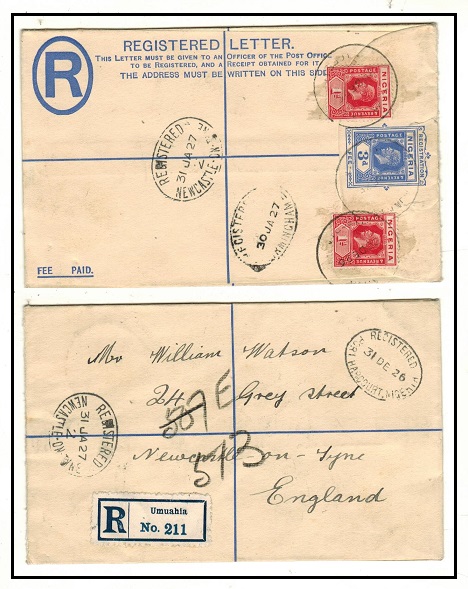 R
REGISTERED LETTER.
THIS LETTER MUST BE GIVEN TO AN OFFICER OF THE POST OFFICE
TO BE REGISTERED, AND A RECEIPT OBTAINED FOR IT.
THE ADDRESS MUST BE WRITTEN ON THIS SIDE
NIGERIA
POSTAGE
& REVENUE
REGISTERED
31 JA 27
NEWCASTLE-ON-
NIGERIA
POSTAGE
3d
REGISTRATION
REGISTERED
30 JA 27
NIGERIA
POSTAGE
& REVENUE
FEE PAID.
Mr William Watson
24 Grey Street
Newcastle-on-Tyne
England
REGISTERED
31 DE 26
PORT HARCOURT, NIGERIA
589 E
513
REGISTERED
31 JA 27
NEWCASTLE-ON-
R
Umuahia
No. 211